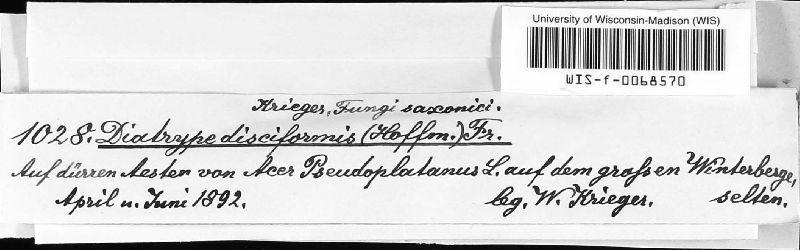 University of Wisconsin-Madison (WIS)
WIS-f-0068570
Krieger, Fungi saxonici.
1028. Diatrype disciformis (Hoffm.) Fr.
Auf dürren Aesten von Acer Pseudoplatanus L. auf dem grossen Winterberge,
April u. Juni 1892. leg. W. Krieger. selten.